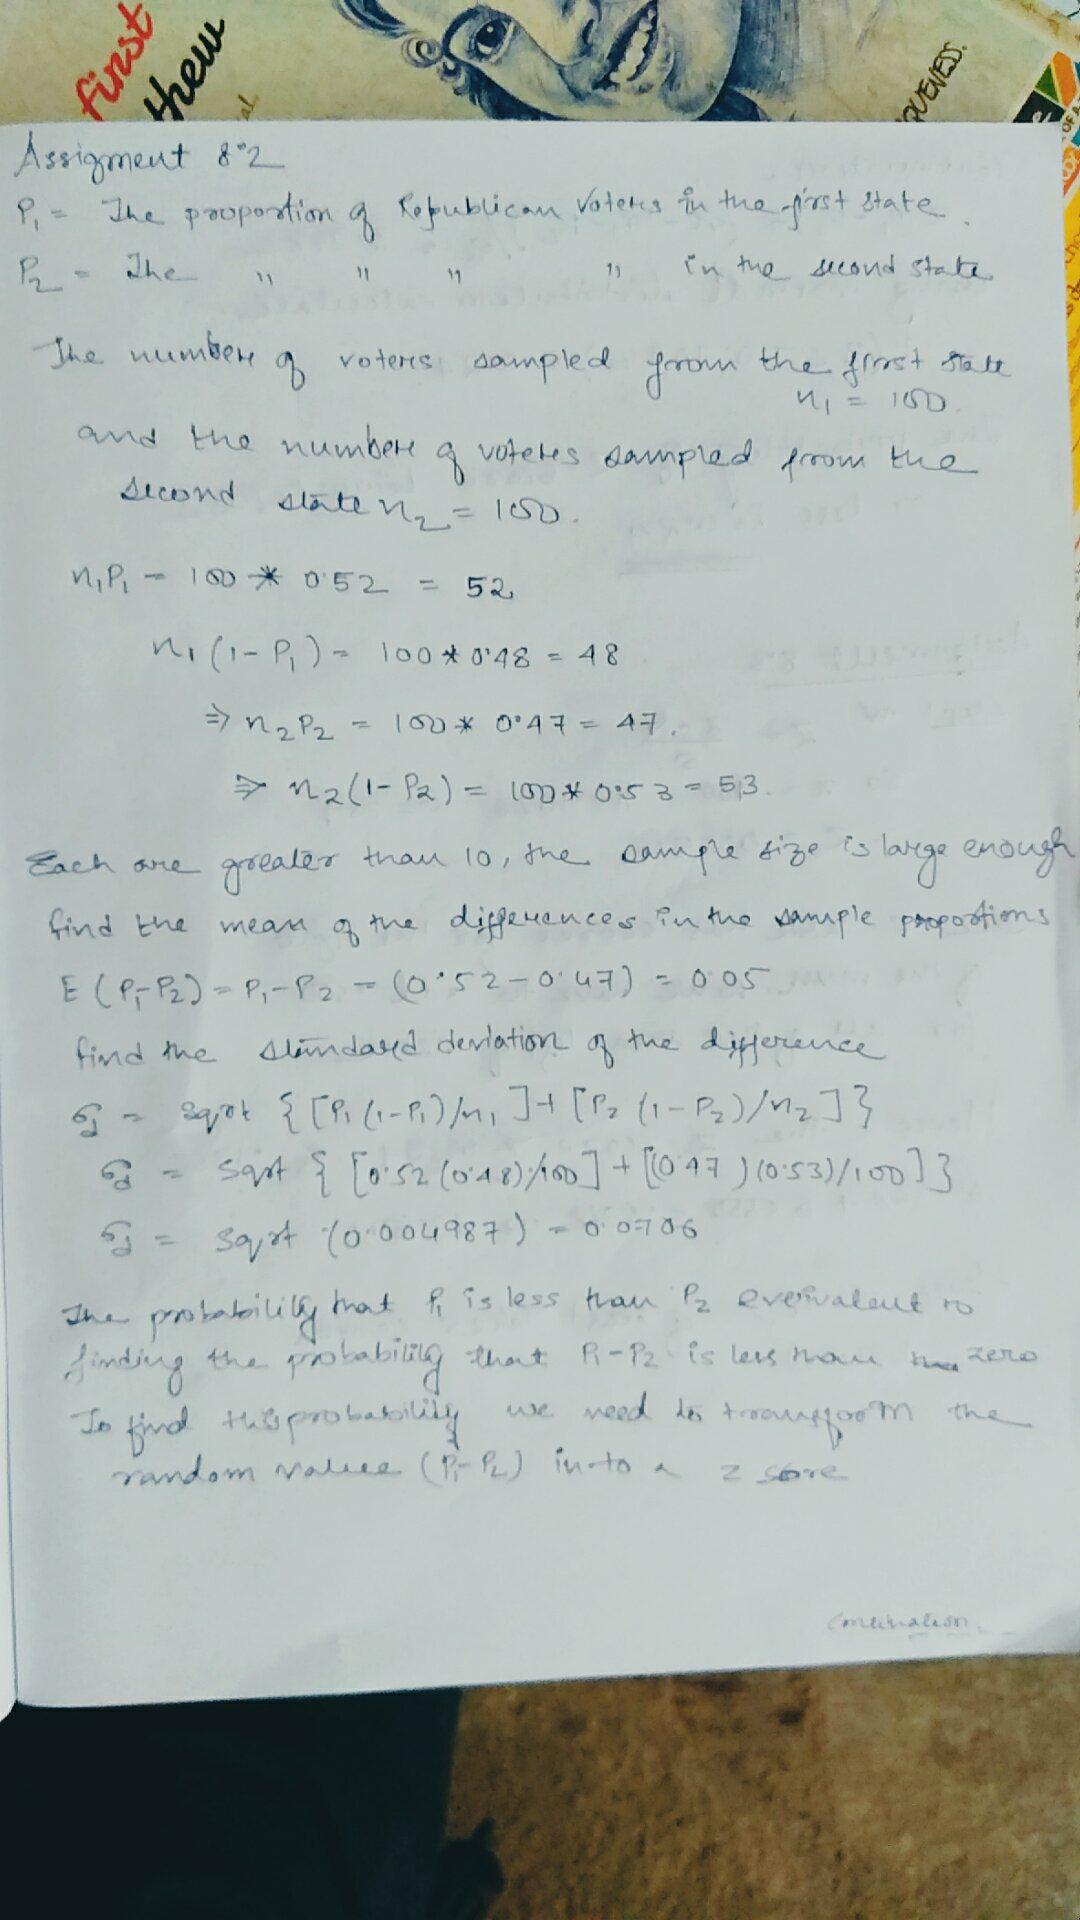 first
then
QUENESS.
Assigment 8.2
P₁ = The proportion of Republican Voters in the first state.
P₂ = The " " " " in the second state
The number of voters sampled from the first state
n₁ = 100.
and the number of voters sampled from the
second state n₂ = 100.
n₁P₁ = 100 * 0.52 = 52
n₁(1-P₁) = 100 * 0.48 = 48
⇒ n₂P₂ = 100 * 0.47 = 47.
⇒ n₂(1-P₂) = 100 * 0.53 = 53.
Each are greater than 10, the sample size is large enough
find the mean of the differences in the sample proportions
E (P₁-P₂) = P₁-P₂ = (0.52-0.47) = 0.05
find the standard deviation of the difference
σd = sqrt { [P₁(1-P₁)/n₁] + [P₂(1-P₂)/n₂] }
σd = sqrt { [0.52(0.48)/100] + [(0.47)(0.53)/100] }
σd = sqrt (0.004987) = 0.0706
The probability that P₁ is less than P₂ to
finding the probability that P₁-P₂ is less than zero
To find this probability we need to transform the
random value (P₁-P₂) in to a z score